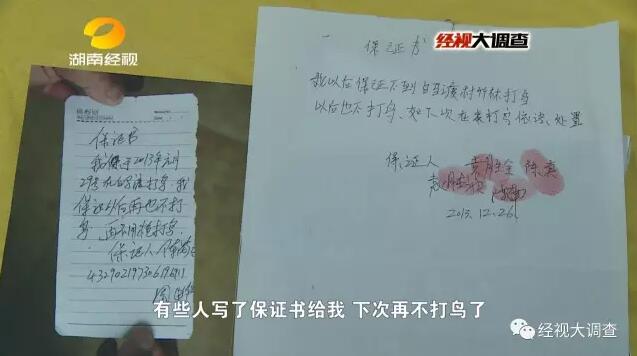 湖南经视
经视大调查
保证书
我保证于2013年元月
29号在白马渡打鸟，我
保证以后再也不打
鸟，再不用枪打鸟.
保证人
保证书
我以后保证不到白马渡村竹林打鸟
以后也不打鸟、如下次在来打鸟依法处置
保证人
2013.12.26
有些人写了保证书给我 下次再不打鸟了
经视大调查